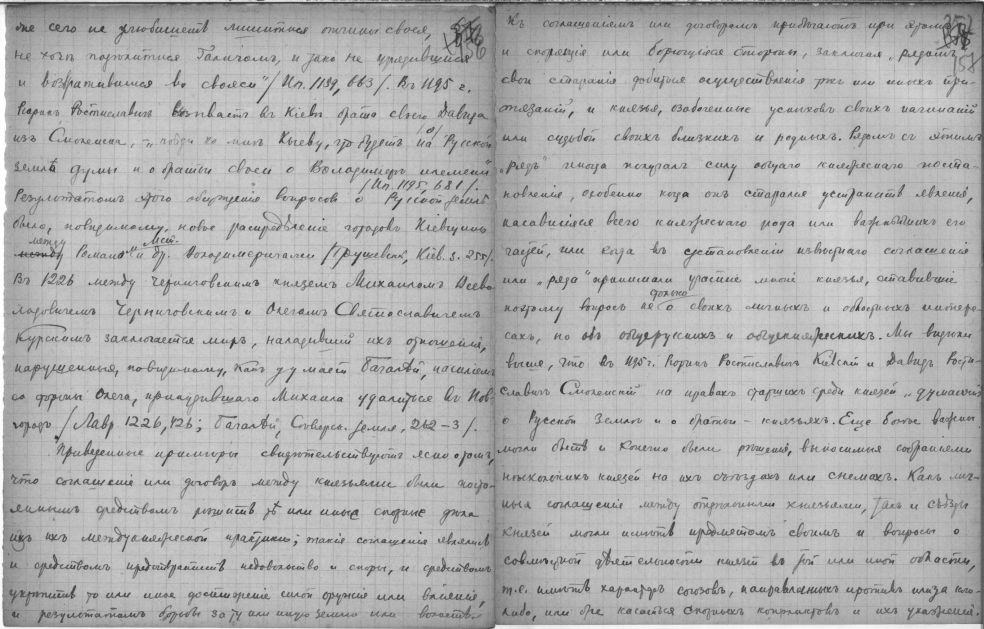 же сего не уговоишетъ лишитися отчины своея,
не хотѣ подѣлитися Галичемъ, и тако не урядившися
и возвратишася во свояси"/Ип. 1189, 663/. Въ 1195 г.
Рюрикъ Ростиславичъ вызываетъ въ Кіевъ брата своего Давида
изъ Смоленска, "поиди ко мнѣ Кыеву, что будетъ на Русской
земли думы и о братьи своеи о Володимерѣ племени"
/Ип. 1195, 681/.
Результатомъ этого обсужденія вопросовъ о Русской землѣ
было, повидимому, новое распредѣленіе городовъ Кіевщины
между Романомъ Мст. и др. Володимеричами /Грушевск., Кіев. з. 255/.
Въ 1226 между Черниговскимъ княземъ Михаиломъ Всево-
лодовичемъ Черниговскимъ и Олегомъ Святославичемъ
Курскимъ заключается миръ, наладившій ихъ отношенія,
нарушенныя, повидимому, какъ думаетъ Багалѣй, насиліемъ
со стороны Олега, принудившаго Михаила удалиться въ Нов-
городъ /Лавр 1226, 426; Багалѣй, Сѣверск. земля, 262-3/.
Приведенные примѣры свидѣтельствуютъ ясно о томъ,
что соглашеніе или договоръ между князьями были посто-
яннымъ средствомъ рѣшить тѣ или иныя спорныя дѣла
изъ ихъ междукняжеской практики; такія соглашенія являлись
и средствомъ предотвратить недовольство и споры, и средствомъ
укрѣпить то или иное достиженіе силой оружія или вліянія,
и результатомъ борьбы за ту или иную землю или волость.
Къ соглашеніямъ или договорамъ прибѣгаютъ при этомъ
и спорящіе или борющіеся стороны, заключая "рядомъ"
свои старанія добиться осуществленія тѣхъ или иныхъ при-
тязаній, и князья, озабоченные успѣхомъ своихъ начинаній
или судьбой своихъ близкихъ и родныхъ. Рядомъ съ этимъ
"рядъ" иногда получалъ силу общаго княжескаго поста-
новленія, особенно когда онъ старался устранить явленія,
касавшіяся всего княжескаго рода или важнѣйшихъ его
частей, или когда въ установленіи извѣстнаго соглашенія
или "ряда" принимали участіе многіе князья, ставившіе
поэтому вопросъ не только о своихъ личныхъ и областныхъ интере-
сахъ, но объ общерусскихъ и общекняжескихъ. Мы видѣли
выше, что въ 1195 г. Рюрикъ Ростиславичъ Кіевскій и Давидъ Рости-
славичъ Смоленскій на правахъ старшихъ среди князей "думаютъ"
о Русской Землѣ и о братьи - князьяхъ. Еще болѣе важны
могли быть и конечно были рѣшенія, выносимыя собраніями
нѣсколькихъ князей на ихъ съѣздахъ или снемахъ. Какъ лич-
ныя соглашенія между отдѣльными князьями, такъ и съѣзды
князей могли имѣть предметомъ своимъ и вопросы о
совмѣстной дѣятельности князей въ той или иной области,
т.е. имѣть характеръ союзовъ, направленныхъ противъ или за кого-
либо, или же касаться спорныхъ конфликтовъ и ихъ улаженія.